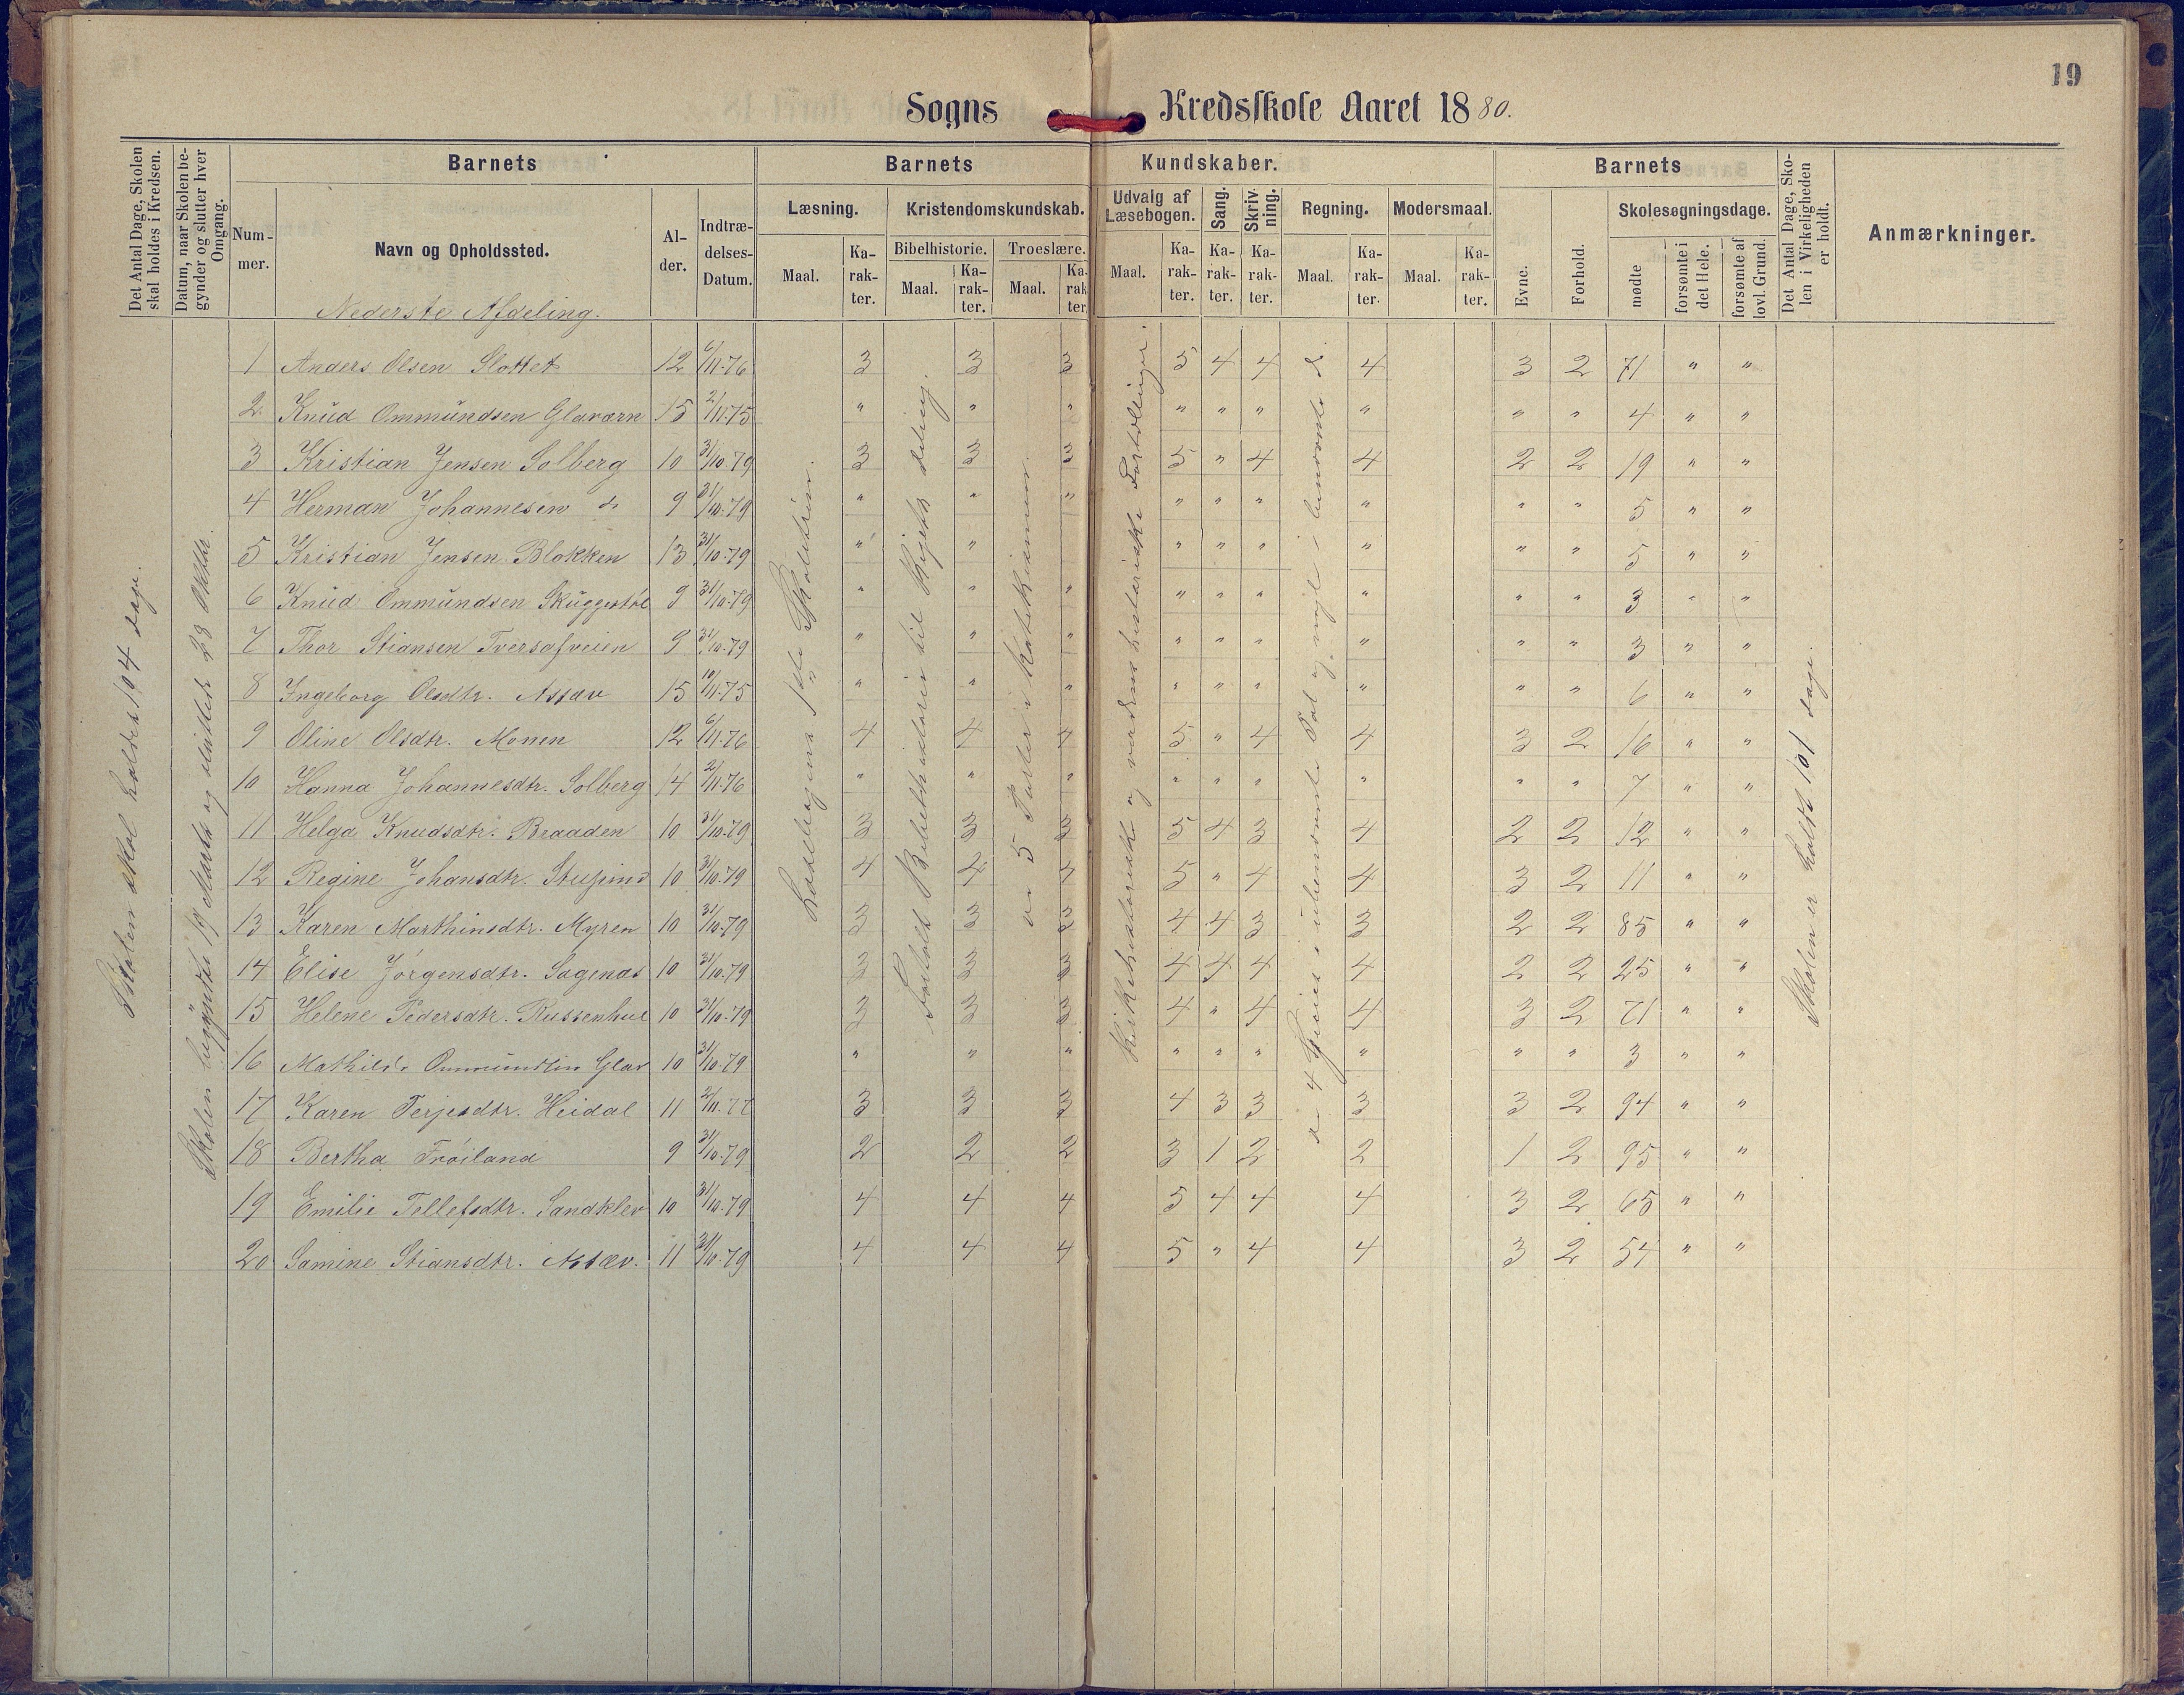 19
Sogns Kredsskole Aaret 1880.
Det Antal Dage, Skolen skal holdes i Kredsen.
Datum, naar Skolen begynder og slutter hver Omgang.
Barnets
Barnets Kundskaber.
Barnets
Det Antal Dage, Skolen i Virkeligheden er holdt.
Anmærkninger.
Nummer.
Navn og Opholdssted.
Alder.
Indtrædelses-Datum.
Læsning.
Kristendomskundskab.
Udvalg af Læsebogen.
Sang.
Skrivning.
Regning.
Modersmaal.
Evne.
Forhold.
Skolesøgningsdage.
Bibelhistorie.
Troeslære.
Maal.
Karakter.
Maal.
Karakter.
Maal.
Karakter.
Maal.
Karakter.
Karakter.
Karakter.
Maal.
Karakter.
Maal.
Karakter.
mødte
forsømte i det Hele.
forsømte af lovl. Grund.
Nederste Afdeling.
Skolen skal holdes 104 dage.
Skolen begyndte 19 Marts og sluttede 23 Oktbr.
1 Anders Olsen Slottet 12 6/11.76 3 3 3 5 4 4 4 3 2 71 " "
2. Knud Ommundsen Glaværn 15 2/11.75 " " " " " " " " " 4 " "
3 Kristian Jensen Solberg 10 31/10.79 3 3 3 5 " 4 4 2 2 19 " "
4 Herman Johannesen do 9 31/10.79 " " " " " " " " " 5 " "
5 Kristian Jensen Blokken 13 31/10.79 " " " " " " " " 5 " "
6 Knud Ommundsen Skuggestøl 9 31/10.79 " " " " " " " " " 3 " "
7 Thor Stiansen Tversafveien 9 31/10.79 " " " " " " " " " 3 " "
8 Ingeborg Olsdtr. Assæv 15 10/11.75 " " " " " " " " " 6 " "
9 Oline Olsdtr. Monen 12 6/11.76 4 4 4 5 " 4 4 3 2 16 " "
10 Hanna Johannesdtr. Solberg 14 2/11.76 " " " " " " " " " 7 " "
11 Helga Knudsdtr. Braaden 10 31/10.79 3 3 3 5 4 3 4 2 2 12 " "
12 Regine Johansdtr. 10 31/10.79 4 4 4 5 " 4 4 3 2 11 " "
13 Karen Marthinsdtr. Myren 10 31/10.79 3 3 3 4 4 3 3 2 2 85 " "
14 Elise Jørgensdtr. Sagenæs 10 31/10.79 3 3 3 4 4 4 4 2 2 25 " "
15 Helene Pedersdtr. Russenhul 10 31/10.79 3 3 3 4 " 4 4 3 2 71 " "
16 Mathilde Ommundtin Glav 10 31/10.79 " " " " " " " " " 3 " "
17 Karen Terjesdtr. Heidal 11 2/11.77 3 3 3 4 3 3 3 3 2 94 " "
18 Bertha Frøiland 9 31/10.79 2 2 2 3 1 2 2 1 2 95 " "
19 Emilie Tellefsdtr. Sandklev 10 31/10.79 4 4 4 5 4 4 4 3 2 65 " "
20 Samine Stiansdtr. Assæv. 11 31/10.79 4 4 4 5 " 4 4 3 2 54 " "
Læsebogens 1ste Skoletrin.
Fortalt Bibelhistorie til Rigets deling.
de 5 Parter i Katekismen.
Kirkehistoriske og verdenshistoriske Fortællinger.
de 4 Species i ubenævnte Tal og nogle i benævnte d.
Skolen er holdt 101 dage.